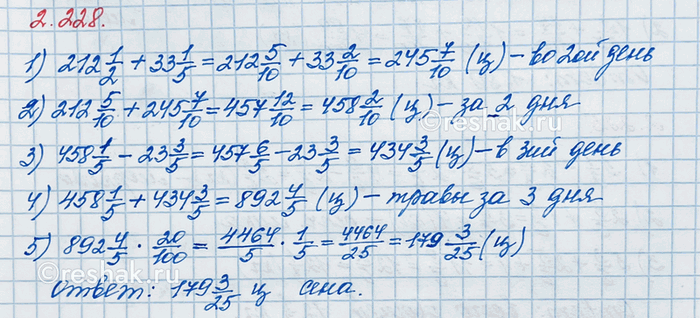 2.228.
1) 212 1/2 + 33 1/5 = 212 5/10 + 33 2/10 = 245 7/10 (ц) – во 2ой день
2) 212 5/10 + 245 7/10 = 457 12/10 = 458 2/10 (ц) – за 2 дня
©reshak.ru
3) 458 1/5 – 23 3/5 = 457 6/5 – 23 3/5 = 434 3/5 (ц) – в 3ий день
4) 458 1/5 + 434 3/5 = 892 4/5 (ц) – травы за 3 дня
5) 892 4/5 · 20/100 = 4464/5 · 1/5 = 4464/25 = 179 3/25 (ц)
©reshak.ru
Ответ: 179 3/25 ц сена.